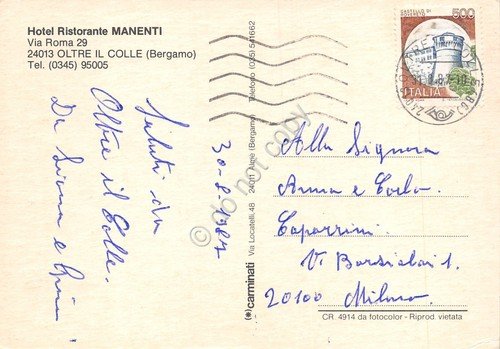 Hotel Ristorante MANENTI
Via Roma 29
24013 OLTRE IL COLLE (Bergamo)
Tel. (0345) 95005
Saluti da
Oltre il Colle.
Di e
30-8-1987
(*) carminati Via Locatelli, 48 24011 Almè (Bergamo) Telefono (035) 541662
500
ITALIA
Alla Signora
Anna e Carlo
Caparrini
V.
20100 Milano
CR 4914 da fotocolor - Riprod. vietata
do not copy